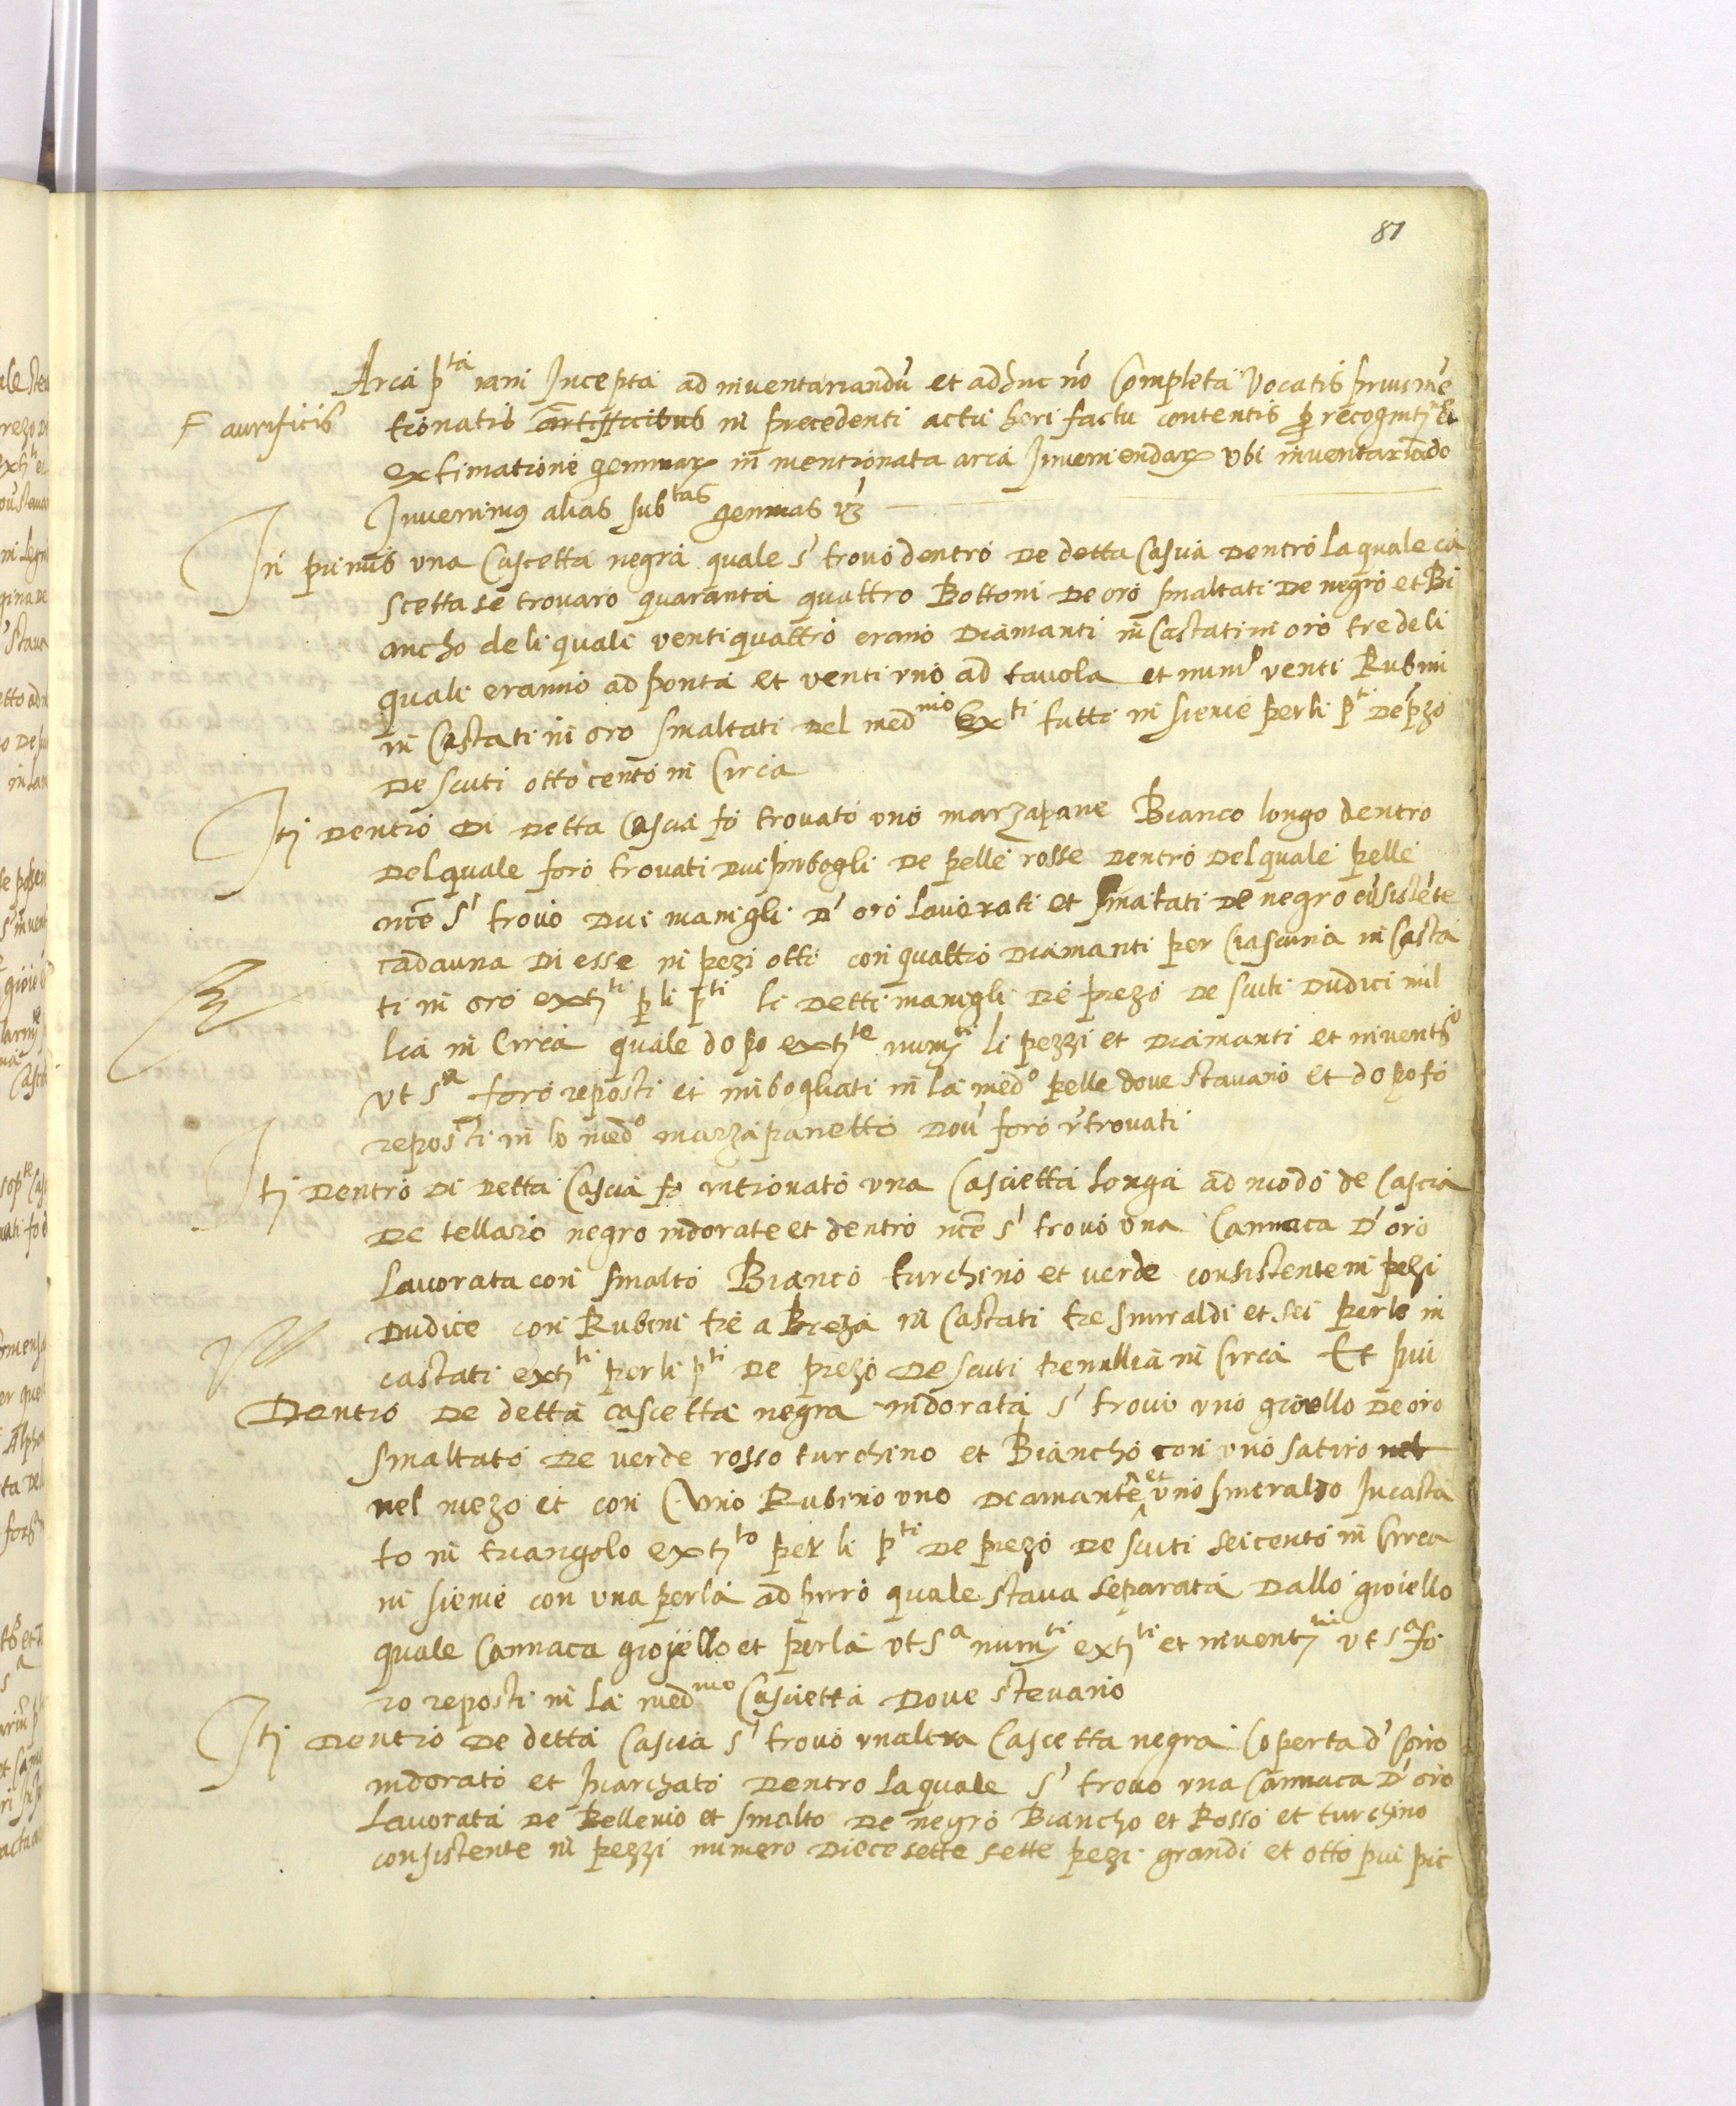 81
Arca p^ta iam Incepta ad inventariandũ et adhuc nõ Completa Vocatis
F aurificis
tionatis artificibus in precedenti actu heri factu contentis
extimatione gemmar in mentionata arca Inveniendar Ubi inventariãdo
Invenimus alias sub^tas gemmas
In primis una Cascetta negra quale s' trovó dentro de detta Cascia dentro la quale ca
scetta se trovaro quaranta quattro Bottoni de oro smaltati de negro et Bi
ancho deli quali venti quattro erano Diamanti in Castati in oro tre deli
quali eranno ad ponta et venti uno ad tavola et num^o venti Rubini
in Castati in oro smaltati del med^mo Ex^ti tutti in sieme per li p^ti de p'zo
De scuti otto cento in Circa
Itj dentro di detta Cascia fo trovato uno marzapane Bianco longo dentro
Del quale foro trovati dui imbogli de pelle rosse dentro Del quale pelle
s' trovo dui manigli d' oro lavorati et smaltati de negro cũsistẽte
cadauna di esse in pezi otti con quattro Diamanti per Ciascuna in Casta
ti in oro extj^ti p li p^ti li detti manigli de prezo de scuti dudici mil
lia in Circa quale dopo extj^te numj^ti li pezzi et Diamanti et
ut s^a foro reposti et imbogliati in la med^o pelle dove stavano et dopo fo
reposti in lo med^o marzapanetto dov' foro r'trovati
Itj dentro di detta Cascia fo una Cascietta longa ad modo de Cascia
De tellaro negro indorate et dentro s' trovó una Cannaca d' oro
Lavorata con smalto Bianco turchino et verde consistente in pezi
Dudice con Rubini tre a in Castati tre smiraldi et sei perle in
castati extj^ti per li p^ti de prezo de scuti tre millia in Circa Et piu
Dentro de detta cascetta negra indorata s' trovó uno gioiello de oro
smaltato de verde rosso turchino et Biancho con uno nel
nel mezo et con Uno Rubino uno diamante et uno smeraldo Incasta
to in triangolo extj^to per li p^ti de prezo de scuti seicento in Circa
in sieme con una perla ad quale stava separata dallo gioiello
quale Cannaca gioiello et perla ut s^a numj^ti extj^ti et ut s^a fo
ro reposti in la med^mo Cascietta dove stevano
Itj dentro de detta Cascia s' trovó unaltra Cascetta negra Coperta d'
indorato et dentro la quale s' trovo una Cannaca d' oro
Lavorata de et smalto de negro Biancho et Rosso et turchino
consistente in pezzi numero diece sette sette pezi grandi et otto piu pic